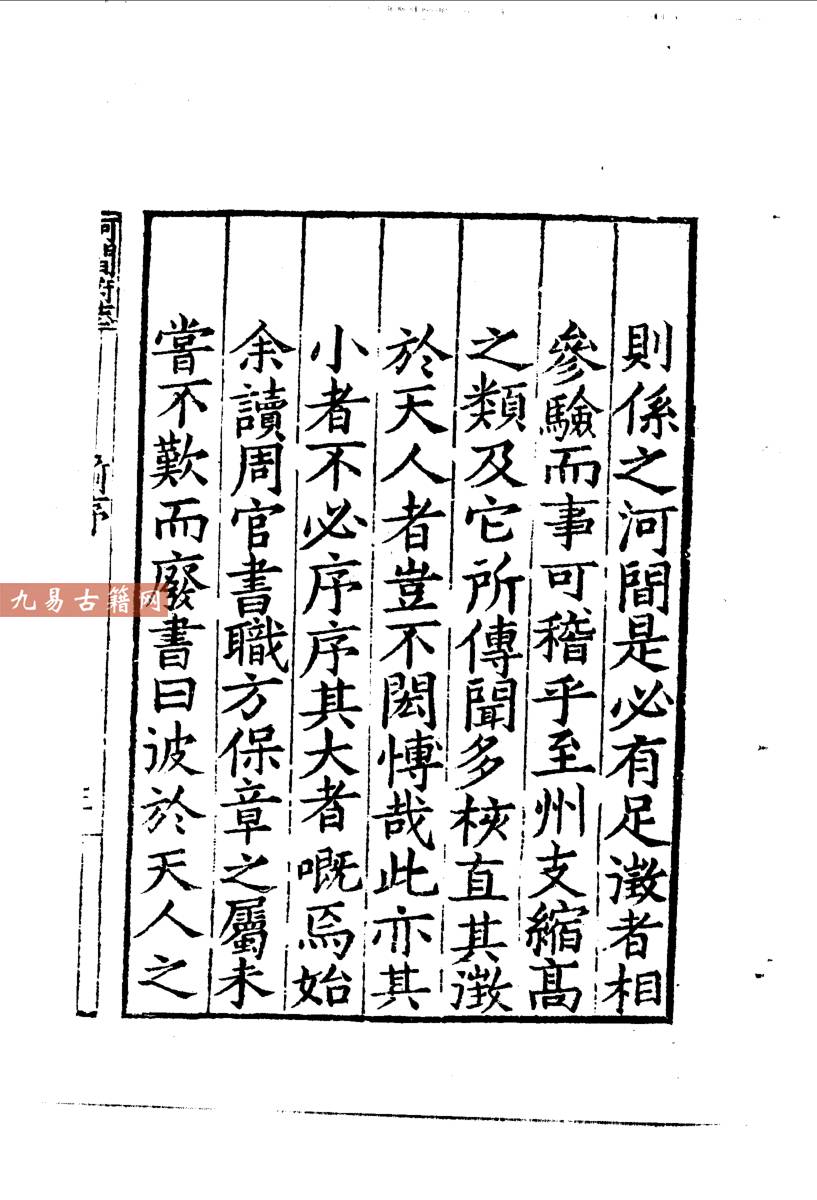 則係之河間是必有足徵者相
參驗而事可稽乎至州支縮高
之類及它所傳聞多核直其徵
於天人者豈不閎愽哉此亦其
小者不必序序其大者嘅焉始
余讀周官書職方保章之屬未
嘗不歎而廢書曰彼於天人之
河間府志
前序
三
九易古籍网